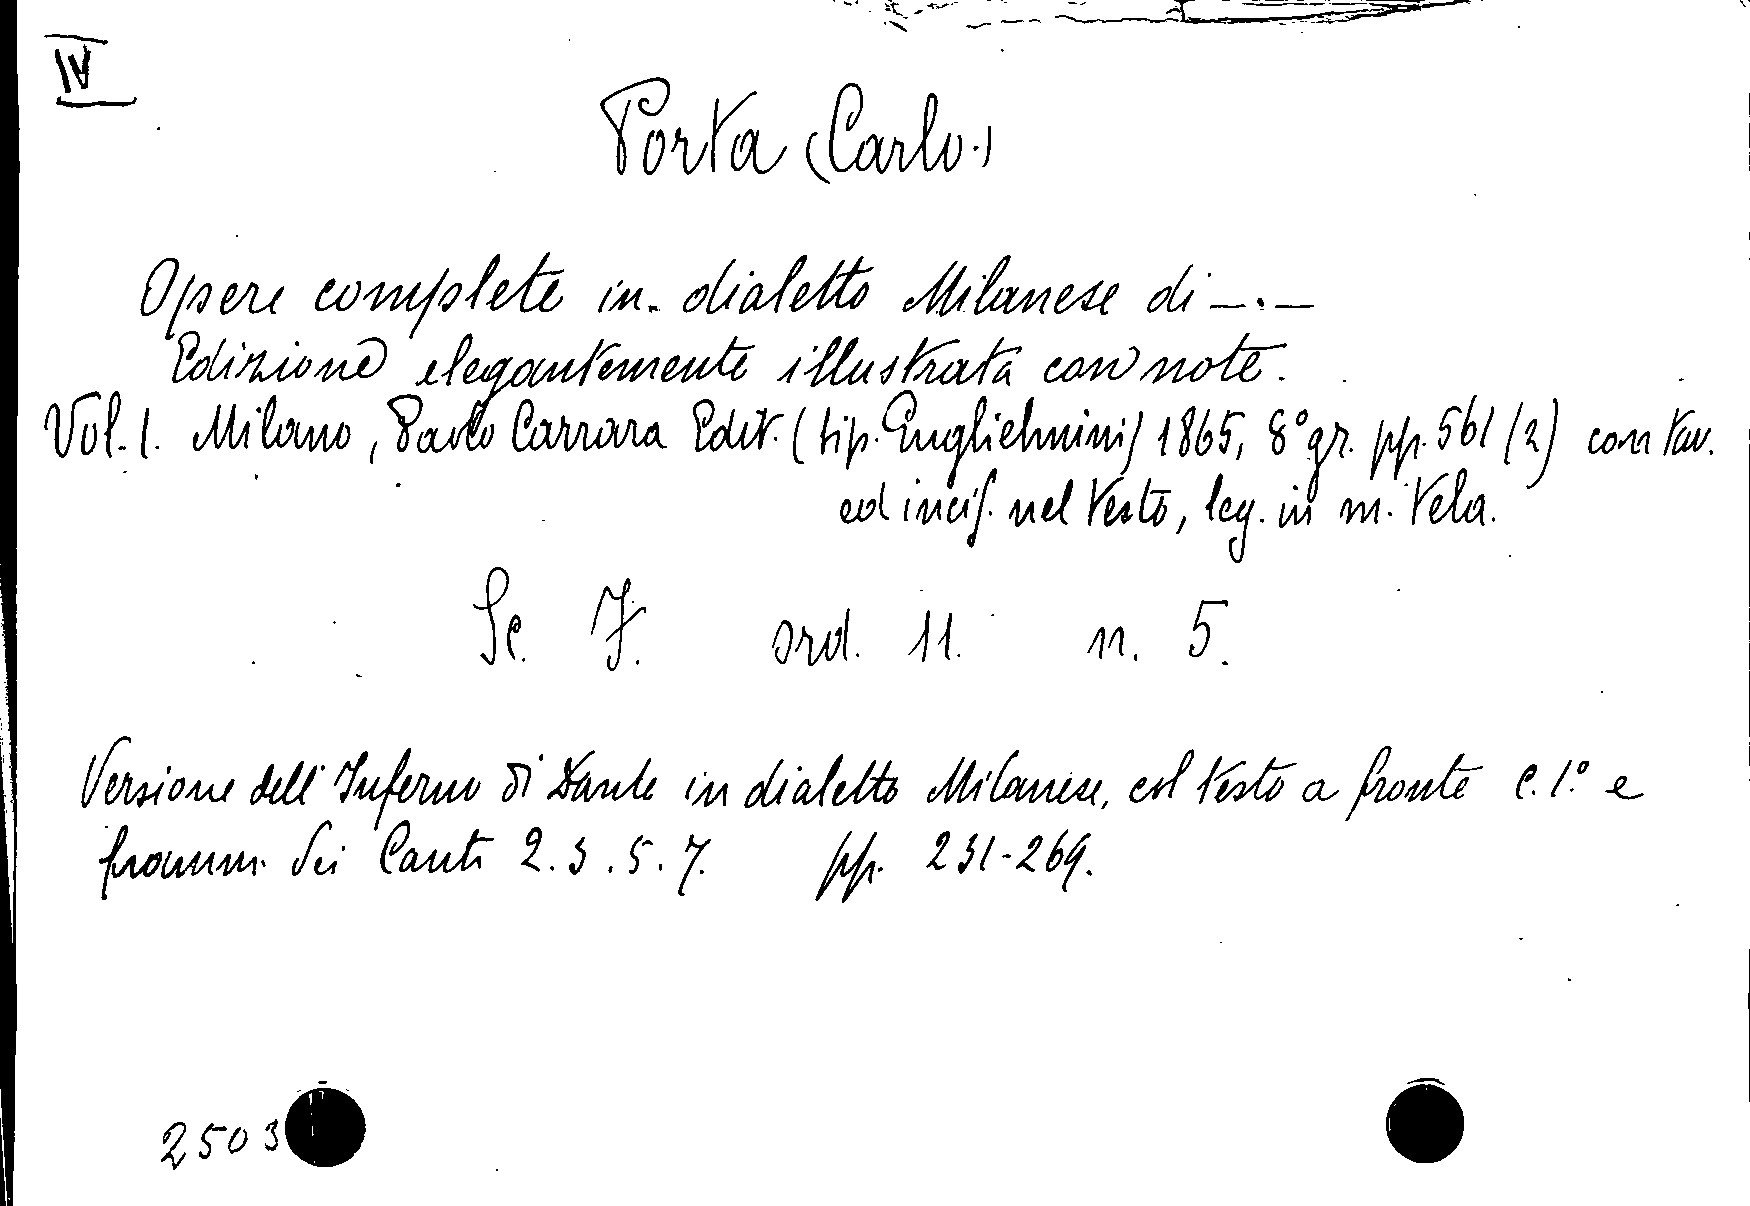 IV
Porta (Carlo.)
Opere complete in. dialetto Milanese di —.—
Edizione elegantemente illustrata con note.
Vol. 1. Milano, Paolo Carrara Edit. (tip. Guglielmini) 1865, 8° gr. pp. 561 (2) con tav.
ed incis. nel testo, leg. in m. tela.
Sc. I. ord. 11. n. 5.
Versione dell' Inferno di Dante in dialetto Milanese, col testo a fronte C. 1.° e
framm. dei Canti 2. 3. 5. 7. pp. 231-269.
2503